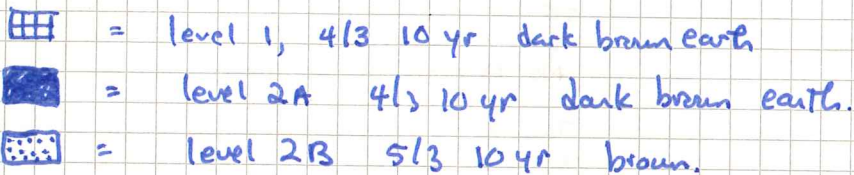 = level 1, 4/3 10 yr dark brown earth
= level 2A 4/3 10 yr dark brown earth.
= level 2B 5/3 10 yr brown.